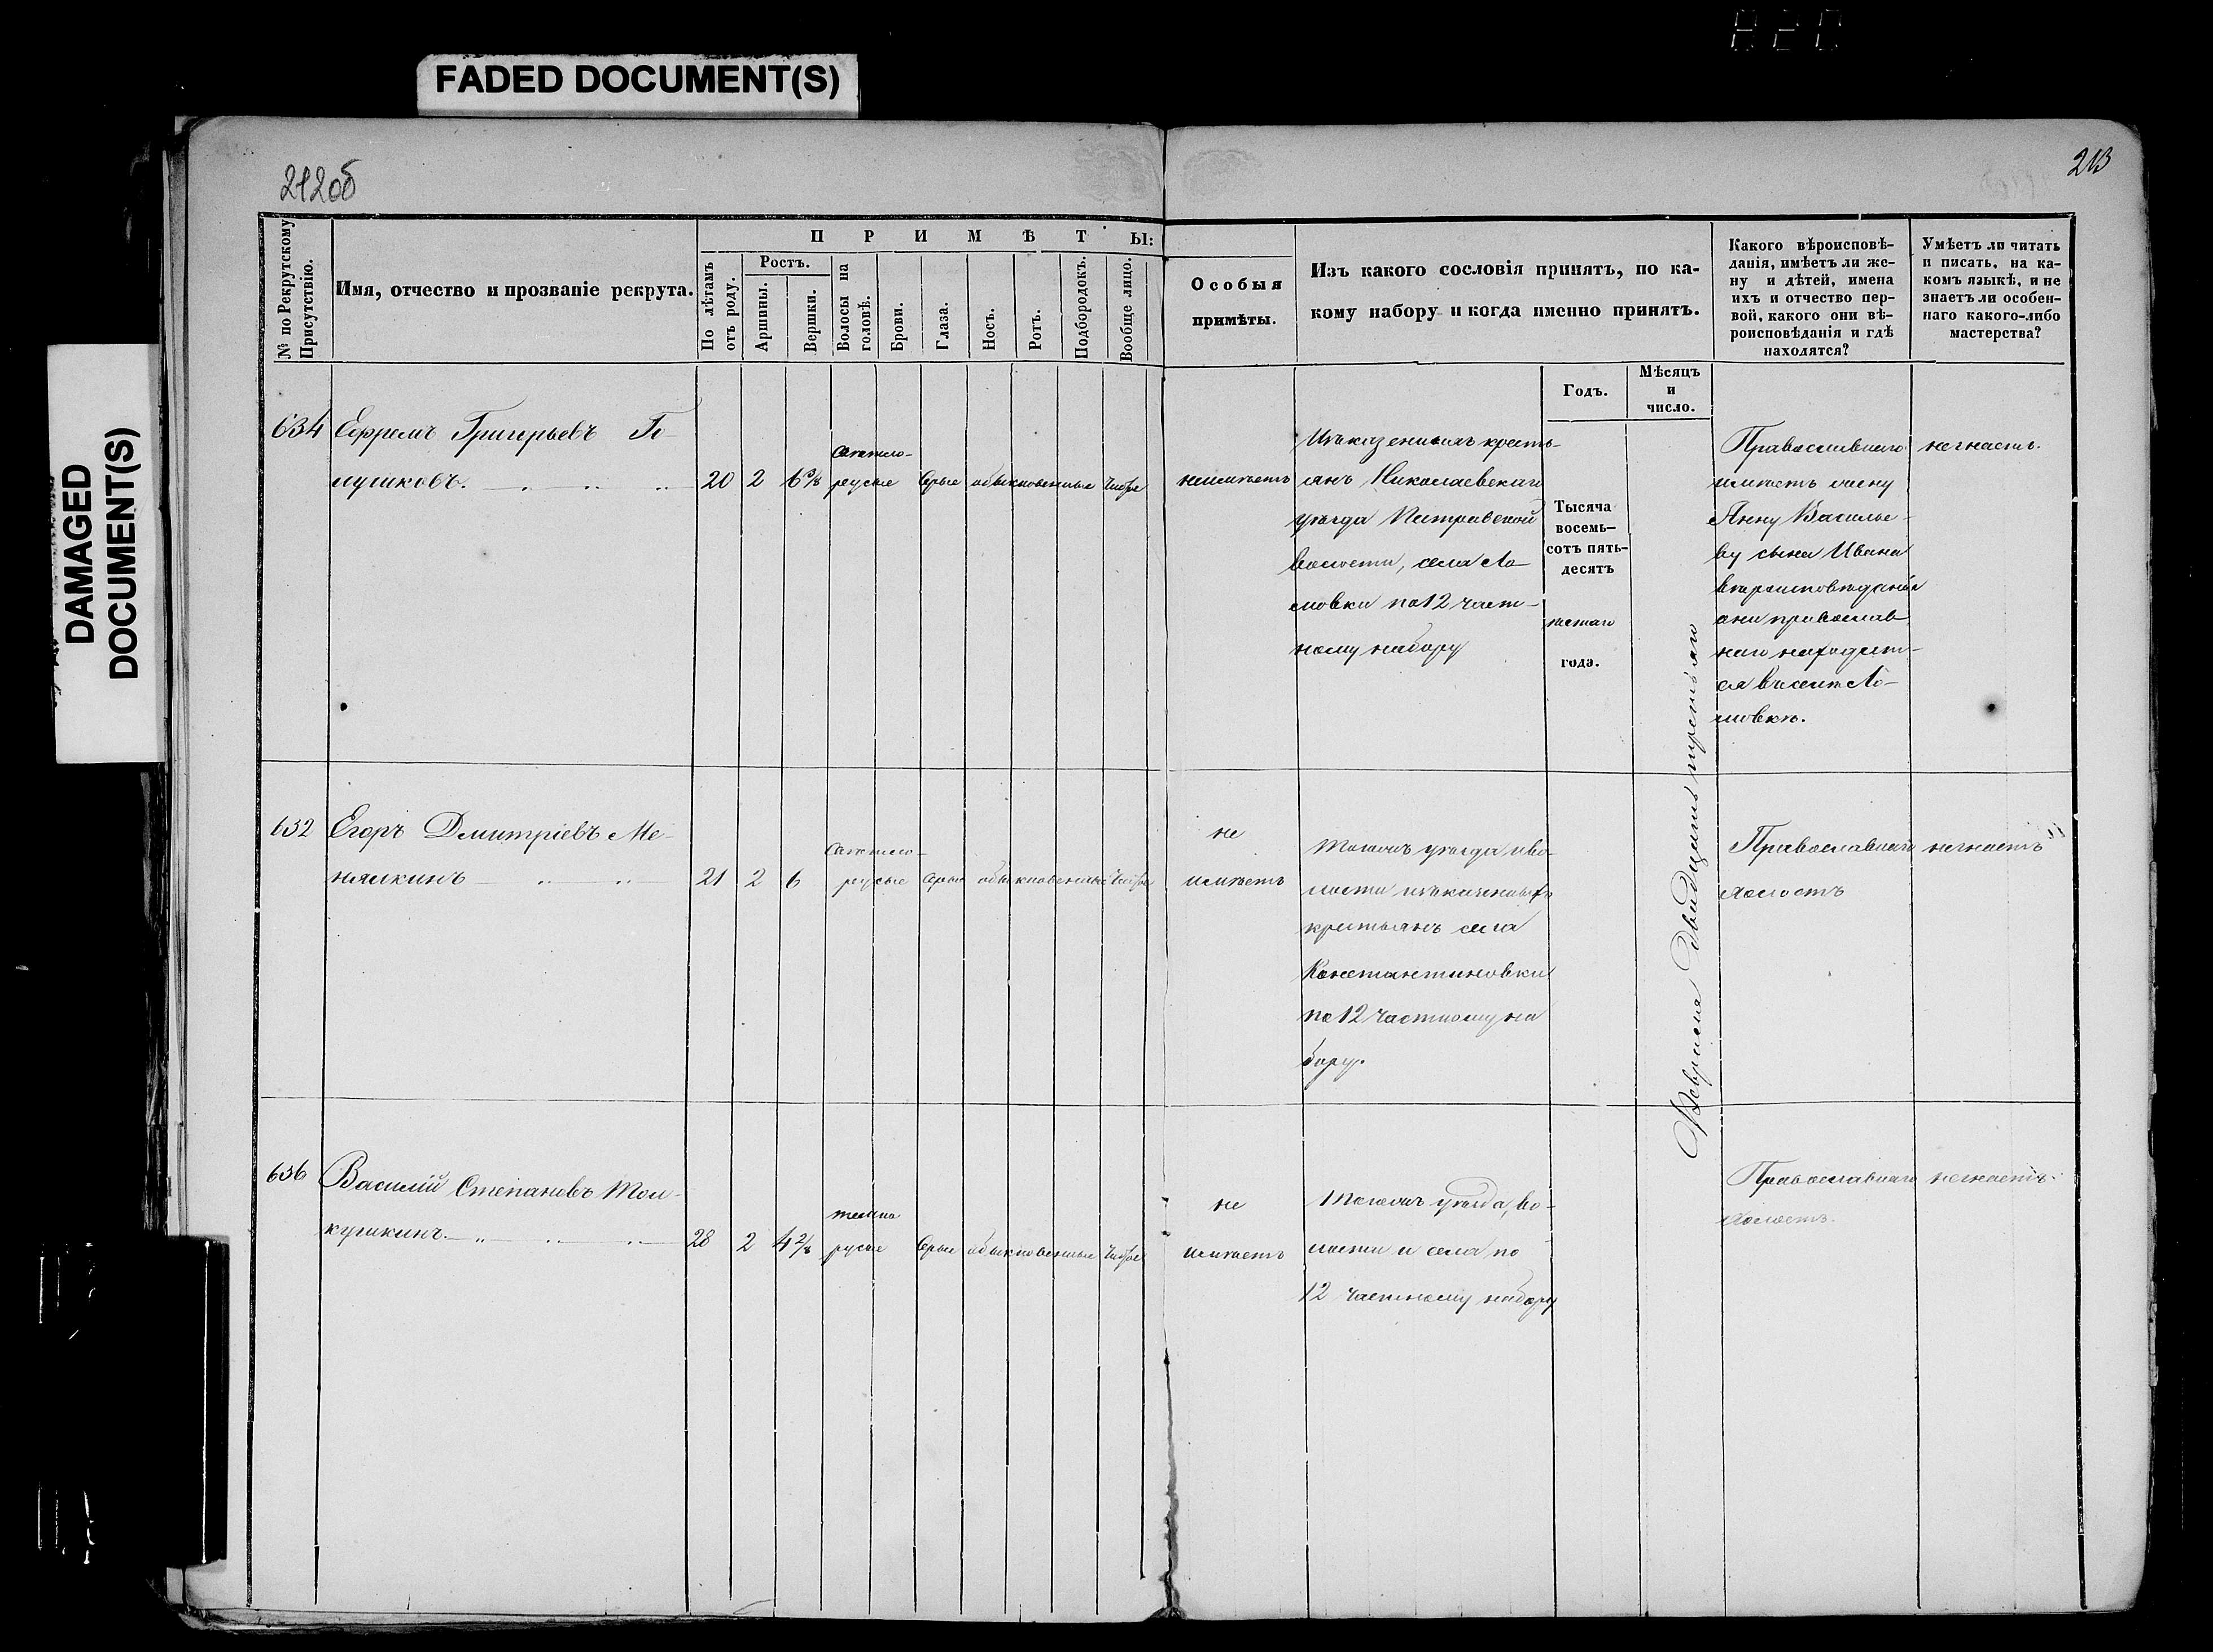 FADED DOCUMENT(S)
DAMAGED
DOCUMENT(S)
212об
213
№ по Рекрутскому
Присутствію.
Имя, отчество и прозваніе рекрута.
ПРИМѢТЫ:
По лѣтамъ
отъ роду.
Ростъ.
Аршины.
Вершки.
Волосы на
головѣ.
Брови.
Глаза.
Носъ.
Ротъ.
Подбородокъ.
Вообще лицо.
Особыя
примѣты.
Изъ какого сословія принятъ, по ка-
кому набору и когда именно принятъ.
Годъ.
Мѣсяцъ
и
число.
Какого вѣроисповѣ-
данія, имѣетъ ли же-
ну и дѣтей, имена
ихъ и отчество пер-
вой, какого они вѣ-
роисповѣданія и гдѣ
находятся?
Умѣетъ ли читать
и писать, на ка-
комъ языкѣ, и не
знаетъ ли особен-
наго какого-либо
мастерства?
634
Ефремъ Григорьевъ
20 2 6 3/8
свѣтло-
русые
сѣрые
обыкновенные
чистое
неимѣетъ
Изъ казенныхъ кресть-
янъ Николаевскаго
уѣзда Петровской
волости, села Ло-
мовки по 12 част-
ному набору
Тысяча
восемь-
сотъ пять-
десятъ
года.
Февраля двадцать третьяго
Православнаго
имѣетъ жену
Анну Василье-
ву сына Ивана
вѣроисповѣданія
они православ
наго находят-
ся въ селѣ Ло-
мовкѣ.
незнаетъ.
632
Егоръ Дмитріевъ Ме-
нялкинъ
21 2 6
свѣтло-
русые
сѣрые
обыкновенные
чистое
не
имѣетъ
Тогожъ уѣзда и во-
лости изъ казенныхъ
крестьянъ села
Константиновки
по 12 частному на
бору.
Православнаго
холостъ
незнаетъ
636
Василій Степановъ Тол-
кушкинъ
28 2 4 2/8
темно
русые
сѣрые
обыкновенные
чистое
не
имѣетъ
Тогожъ уѣзда, во-
лости и села по
12 частному набору
Православнаго
холостъ.
незнаетъ.